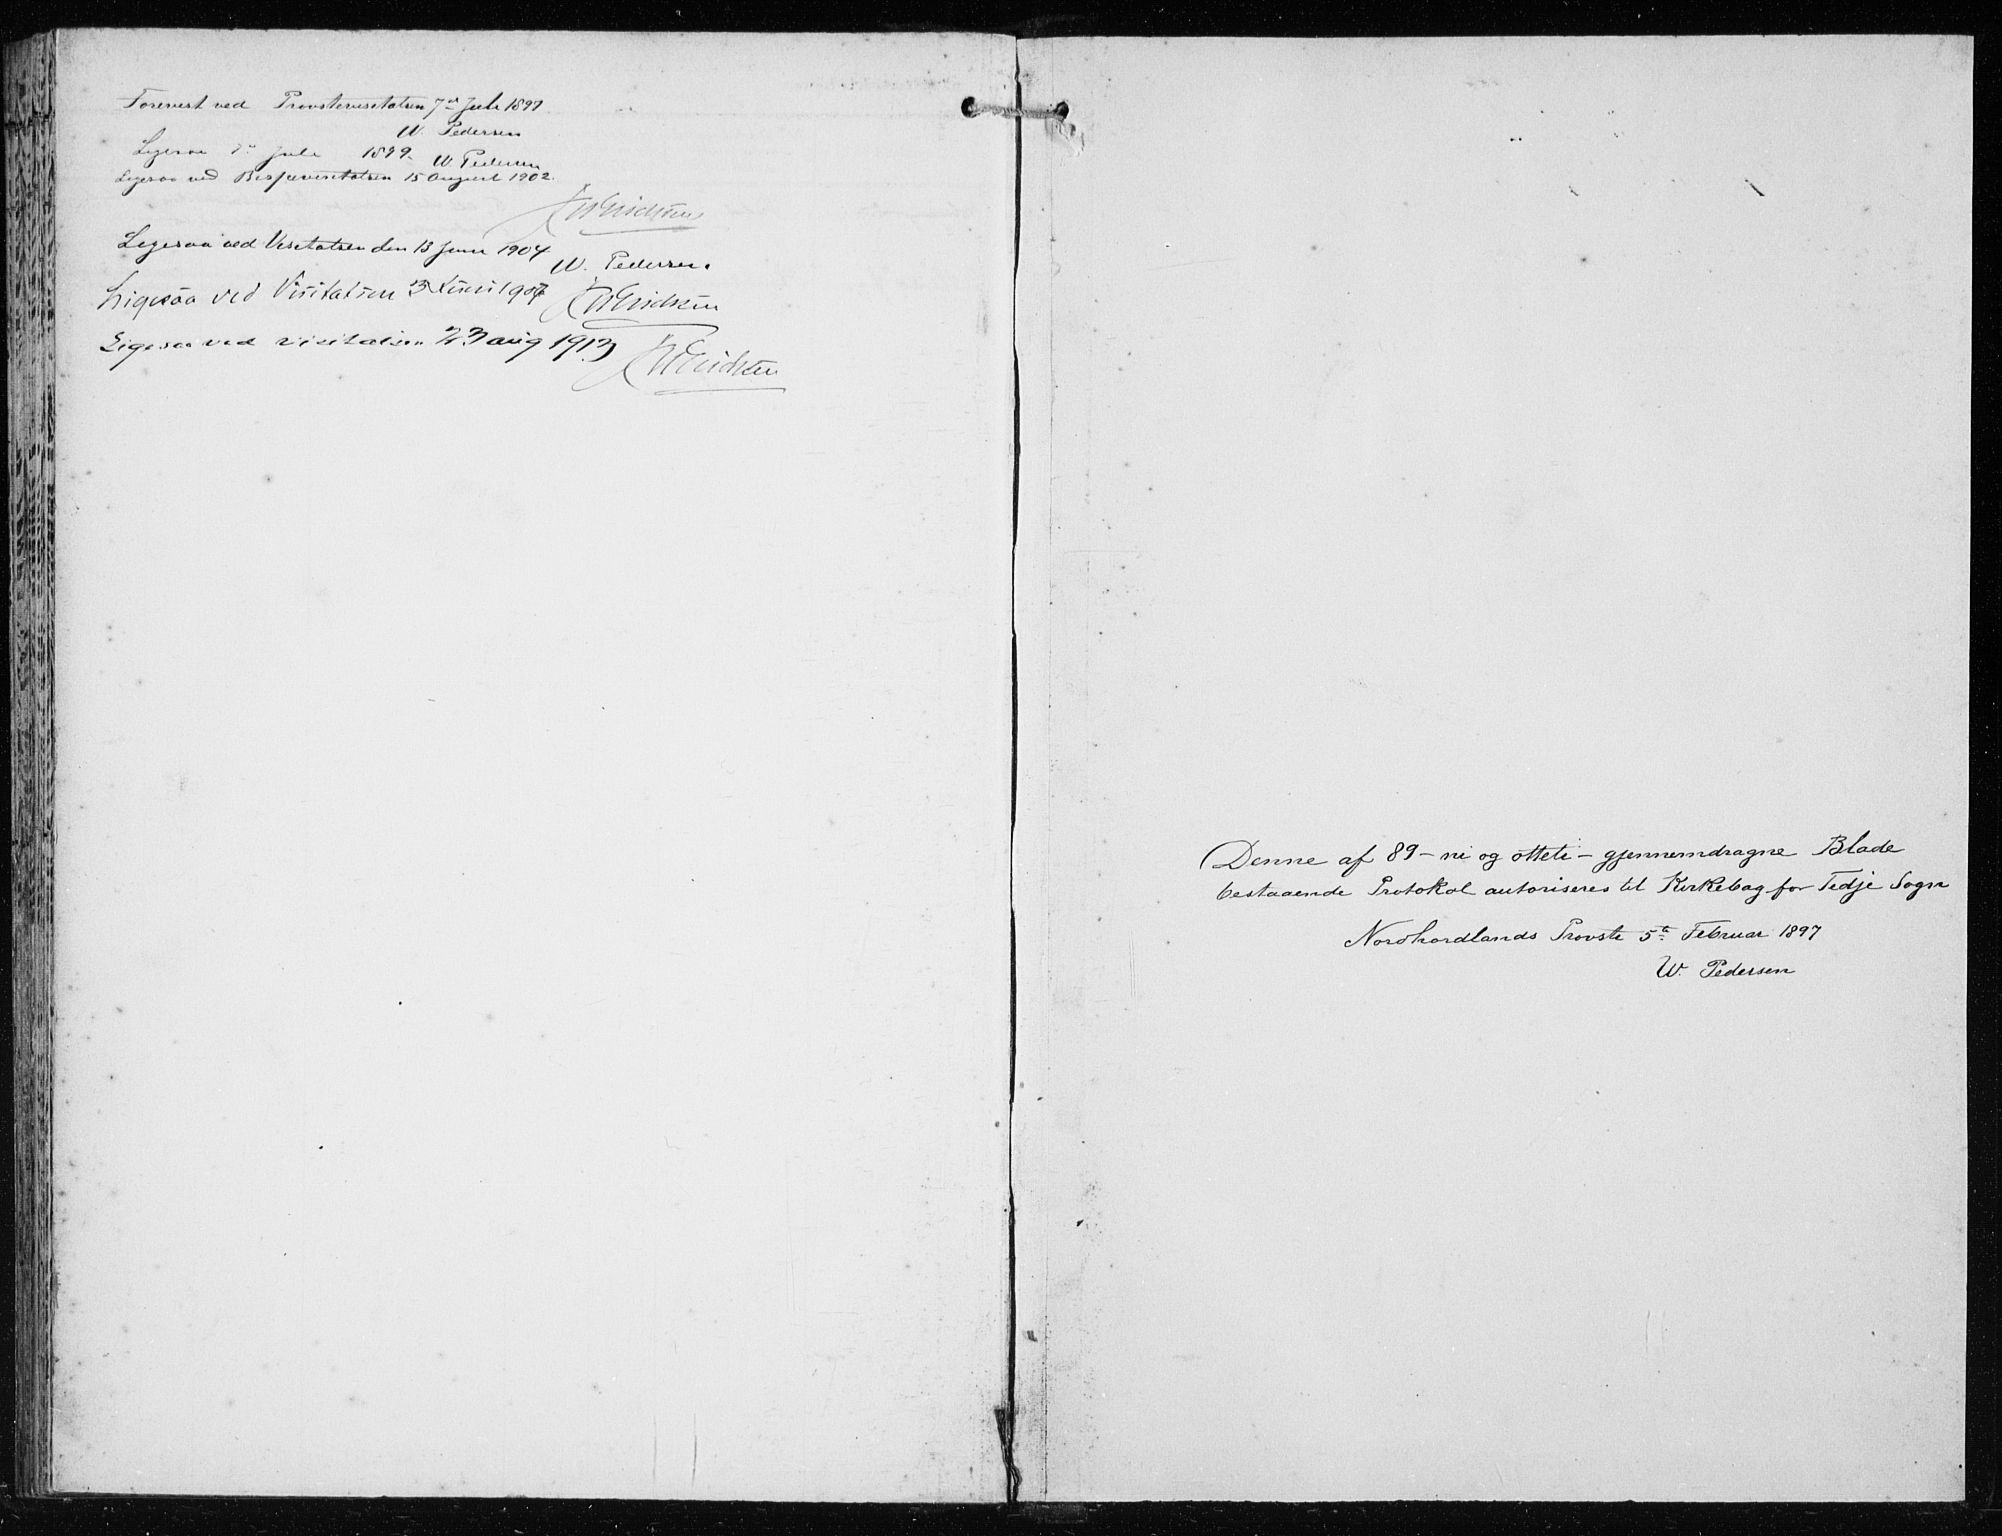 Forevist ved Provstevisitatsen 7de Juli 1897.
W. Pedersen
Ligesaa Juli 1899. W. Pedersen
Ligesaa ved Bispevisitatsen 15 August 1902.
Ligesaa ved Visitatsen den 13 Juni 1904
W. Pedersen.
Ligesaa ved Visitatsen 3 Juni 1907
Ligesaa ved visitatsen 23 aug 1913
Denne af 89 – ni og otteti – gjennemdragne Blade
bestaaende Protokol autoriseres til Kirkebog for Fedje Sogn
Nordhordlands Provsti 5te Februar 1897
W. Pedersen